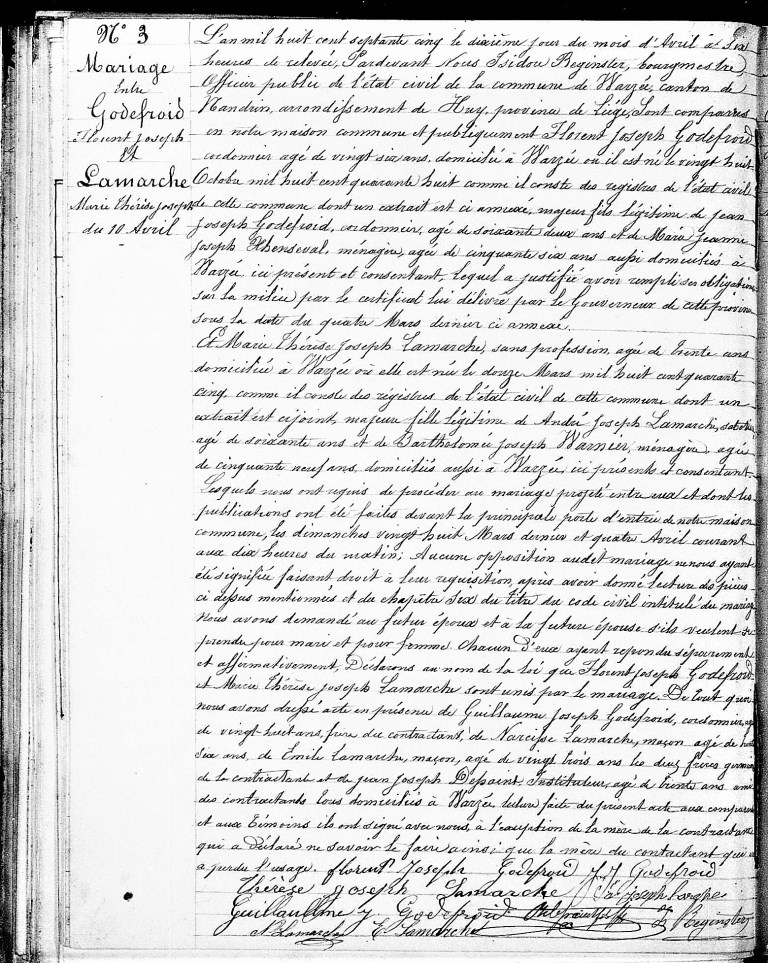 N° 3
Mariage
Entre
Godefroid
Florent Joseph
Et
Lamarche
Marie Thérèse Joseph
du 10 Avril
L'an mil huit cent septante cinq le dixième jour du mois d'Avril à six
heures de relevée, Pardevant Nous Isidore Beginster, bourgmestre,
Officier public de l'état civil de la commune de Warzée, canton de
Nandrin, arrondissement de Huy, province de Liège, Sont comparus
en notre maison commune et publiquement Florent Joseph Godefroid
cordonnier agé de vingt six ans, domicilié à Warzée où il est né le vingt huit
Octobre mil huit cent quarante huit comme il conste des registres de l'état civil
de cette commune dont un extrait est ci annexé, majeur fils légitime de Jean
Joseph Godefroid, cordonnier, agé de soixante deux ans et de Marie Jeanne
Joseph Thenseval, ménagère, agée de cinquante six ans aussi domiciliés à
Warzée, ici présent et consentant, lequel a justifié avoir rempli ses obligations
sur la milice par le certificat lui délivré par le Gouverneur de cette province
sous la date du quatre Mars dernier ci annexé.
Et Marie Thérèse Joseph Lamarche, sans profession, agée de trente ans
domiciliée à Warzée où elle est née le douze Mars mil huit cent quarante
cinq, comme il conste des régistres de l'état civil de cette commune dont un
extrait est cijoint, majeure fille légitime de André Joseph Lamarche,
agé de soixante ans et de Barthelomée Joseph Warnier, ménagère, agée
de cinquante neuf ans, domiciliés aussi à Warzée, ici présents et consentant.
Lesquels nous ont requis de procéder au mariage projeté entre eux et dont les
publications ont été faites devant la principale porte d'entrée de notre maison
commune, les dimanches vingt huit Mars dernier et quatre Avril courant
aux dix heures du matin; Aucune opposition audit mariage ne nous ayant
été signifiée faisant droit à leur requisition, après avoir donné lecture des pièces
ci dessus mentionnées et du chapître six du titre du code civil intitulé du mariage
Nous avons demandé au futur époux et à la future épouse s'ils veulent se
prendre pour mari et pour femme. Chacun d'eux ayant repondu séparement
et affirmativement, Déclarons au nom de la loi que Florent Joseph Godefroid
et Marie Thérèse Joseph Lamarche sont unis par le mariage. De tout quoi
nous avons dressé acte en présence de Guillaume Joseph Godefroid, cordonnier, agé
de vingt huit ans, frère du contractant, de Narcisse Lamarche, maçon agé de trente
six ans, de Emile Lamarche, maçon, agé de vingt trois ans les deux frères germains
de la contractante et de Jean Joseph Depaint, Instituteur, agé de trente ans ami
des contractants tous domiciliés à Warzée lecture faite du present acte aux comparants
et aux Témoins ils ont signé avec nous, à l'exception de la mère de la contractante
qui a déclaré ne savoir le faire ainsi que la mère du contactant qui en
a perdu l'usage. florent Joseph Godefroid J J Godefroid
Thérèse Joseph Lamarche
Guillaume J Godefroid I Beginster
N. Lamarche E Lamarche